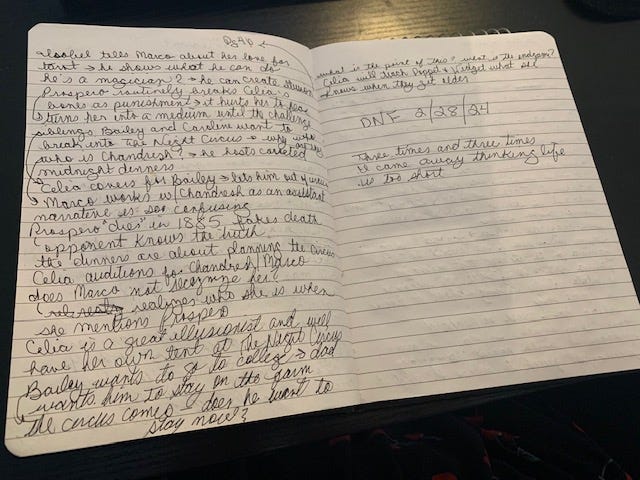 pg 40
Isobel tells Marco about her love for
tarot → he shows what he can do
he's a magician? → he can create illusions
Prospero routinely breaks Celia's
bones as punishment → it hurts her to
turns her into a medium until the challenge
siblings Bailey and Caroline want to
break into The Night Circus → why
who is Chandresh? → he hosts coveted
midnight dinners
Celia covers for Bailey → lets him out of
Marco works w/ Chandresh as an assistant
narrative is soo confusing
Prospero "dies" in 1885 fakes death
opponent knows the truth
the dinners are about planning the circus
Celia auditions for Chandresh/Marco
does Marco not recognize her?
realizes who she is when
she mentions Prospero
Celia is a great illusionist and will
have her own tent at The Night Circus
Bailey wants to go to college → dad
wants him to stay on the farm
the circus comes → does he want to
stay now?
what is the point of this? what is the endgame?
Celia will teach Poppet + Widget what she
knows when they get older
DNF 2/28/24
Three times and three times
I came away thinking life
is too short